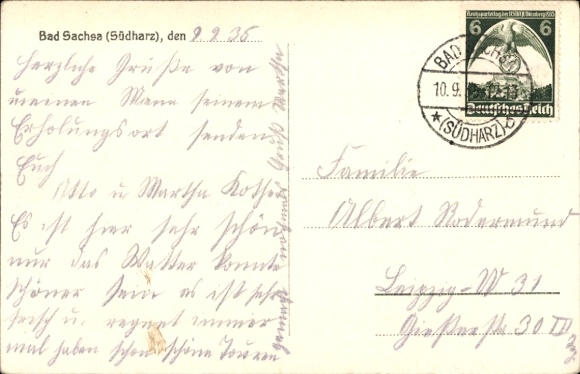 Bad Sachsa (Südharz), den 9 9 35
Herzliche Grüße von
meinen Mann seinem
Erholungsort senden
Euch
Otto u Martha
Es ist hier sehr schön
nur das Watter konnte
schöner sein es ist sehr
frisch u. regnet immer
mal haben schon schöne Touren
gemacht nochmals Gruß Martha
Reichsparteitag der NSDAP Nürnberg 1935
6 6
Deutsches Reich
BAD SACHSA
10.9. 12-13
* (SÜDHARZ) b
Familie
Albert Rodermund
Leipzig-W 31
Gießerstr 30 III